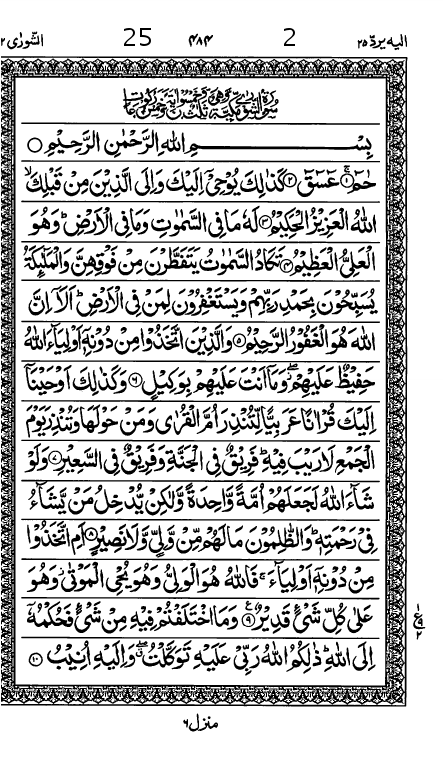 اليه يردّ ٢٥ 2 ٤٨٤ 25 الشورٰى ٤٢
بِسْمِ اللهِ الرَّحْمٰنِ الرَّحِيْمِ ○
حٰمٓ ۚ﴿١﴾ عٓسٓقٓ ﴿٢﴾ كَذٰلِكَ يُوْحِيْٓ اِلَيْكَ وَاِلَى الَّذِيْنَ مِنْ قَبْلِكَ ۙ
اللهُ الْعَزِيْزُ الْحَكِيْمُ ﴿٣﴾ لَهٗ مَا فِي السَّمٰوٰتِ وَمَا فِي الْاَرْضِ ؕ وَهُوَ
الْعَلِيُّ الْعَظِيْمُ ﴿٤﴾ تَكَادُ السَّمٰوٰتُ يَتَفَطَّرْنَ مِنْ فَوْقِهِنَّ وَالْمَلٰٓئِكَةُ
يُسَبِّحُوْنَ بِحَمْدِ رَبِّهِمْ وَيَسْتَغْفِرُوْنَ لِمَنْ فِي الْاَرْضِ ؕ اَلَآ اِنَّ
اللهَ هُوَ الْغَفُوْرُ الرَّحِيْمُ ﴿٥﴾ وَالَّذِيْنَ اتَّخَذُوْا مِنْ دُوْنِهٖٓ اَوْلِيَآءَ اللهُ
حَفِيْظٌ عَلَيْهِمْ ۖ وَمَآ اَنْتَ عَلَيْهِمْ بِوَكِيْلٍ ﴿٦﴾ وَكَذٰلِكَ اَوْحَيْنَآ
اِلَيْكَ قُرْاٰنًا عَرَبِيًّا لِّتُنْذِرَ اُمَّ الْقُرٰى وَمَنْ حَوْلَهَا وَتُنْذِرَ يَوْمَ
الْجَمْعِ لَا رَيْبَ فِيْهِ ؕ فَرِيْقٌ فِي الْجَنَّةِ وَفَرِيْقٌ فِي السَّعِيْرِ ﴿٧﴾ وَلَوْ
شَآءَ اللهُ لَجَعَلَهُمْ اُمَّةً وَّاحِدَةً وَّلٰكِنْ يُّدْخِلُ مَنْ يَّشَآءُ
فِيْ رَحْمَتِهٖ ؕ وَالظّٰلِمُوْنَ مَا لَهُمْ مِّنْ وَّلِيٍّ وَّلَا نَصِيْرٍ ﴿٨﴾ اَمِ اتَّخَذُوْا
مِنْ دُوْنِهٖٓ اَوْلِيَآءَ ۚ فَاللهُ هُوَ الْوَلِيُّ وَهُوَ يُحْيِ الْمَوْتٰى ؗ وَهُوَ
عَلٰى كُلِّ شَيْءٍ قَدِيْرٌ ﴿٩﴾ وَمَا اخْتَلَفْتُمْ فِيْهِ مِنْ شَيْءٍ فَحُكْمُهٗٓ
اِلَى اللهِ ؕ ذٰلِكُمُ اللهُ رَبِّيْ عَلَيْهِ تَوَكَّلْتُ ۖ وَاِلَيْهِ اُنِيْبُ ﴿١٠﴾
منزل ٦